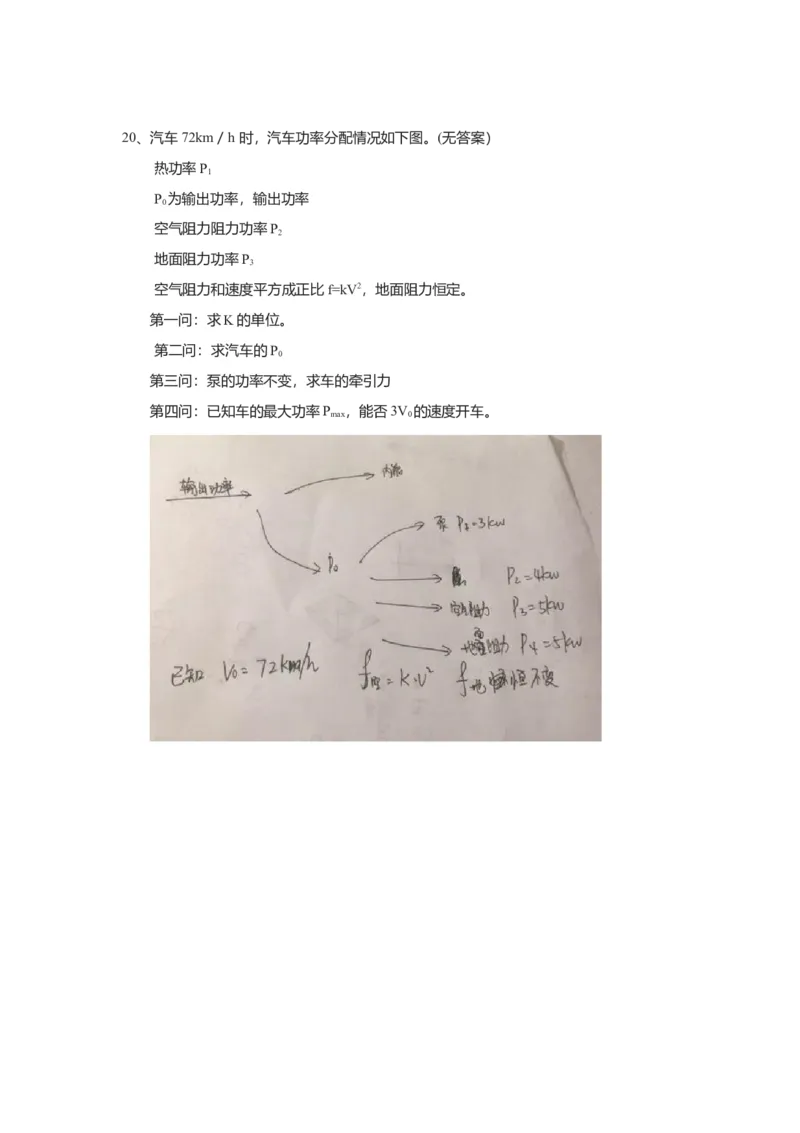 20、汽车 72km / h 时，汽车功率分配情况如下图。(无答案）
热功率 P₁
P₀ 为输出功率，输出功率
空气阻力阻力功率 P₂
地面阻力功率 P₃
空气阻力和速度平方成正比 f=kV²，地面阻力恒定。
第一问：求 K 的单位。
第二问：求汽车的 P₀
第三问：泵的功率不变，求车的牵引力
第四问：已知车的最大功率 Pmax，能否 3V₀ 的速度开车。
输出功率
内能
泵 P₁=3kw
P₀
P₂=4kw
空气阻力 P₃=5kw
地面阻力 P₄=5kw
已知 V₀=72km/h f空=K·V² f地 恒不变